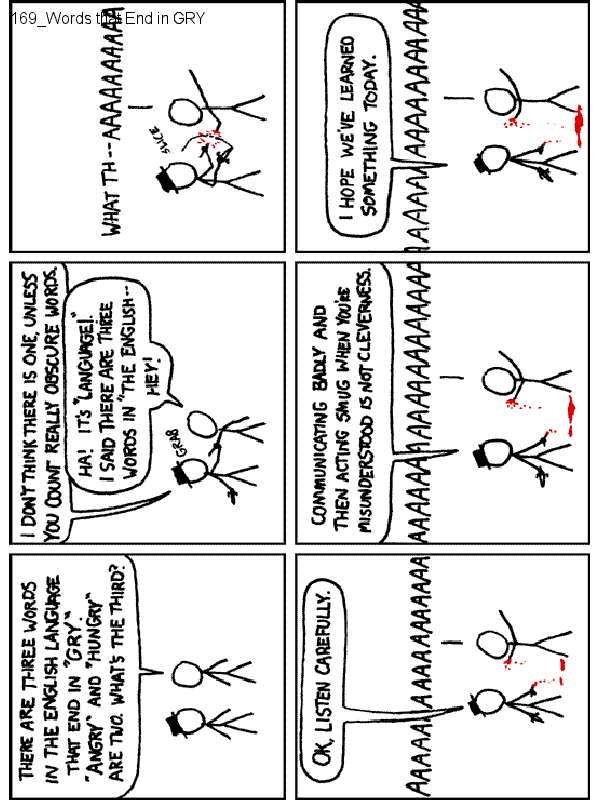 169_Words that End in GRY
THERE ARE THREE WORDS
IN THE ENGLISH LANGUAGE
THAT END IN "GRY".
"ANGRY" AND "HUNGRY"
ARE TWO. WHAT'S THE THIRD?
I DON'T THINK THERE IS ONE, UNLESS
YOU COUNT REALLY OBSCURE WORDS.
HA! IT'S "LANGUAGE!"
I SAID THERE ARE THREE
WORDS IN "THE ENGLISH--
HEY!
GRAB
WHAT TH--AAAAAAAAAA
SLICE
OK, LISTEN CAREFULLY.
AAAAAAAAAAAAAAAA
COMMUNICATING BADLY AND
THEN ACTING SMUG WHEN YOU'RE
MISUNDERSTOOD IS NOT CLEVERNESS.
AAAAAAAAAAAAAAAAAA
I HOPE WE'VE LEARNED
SOMETHING TODAY.
AAAAAAAAAAAAAAAA